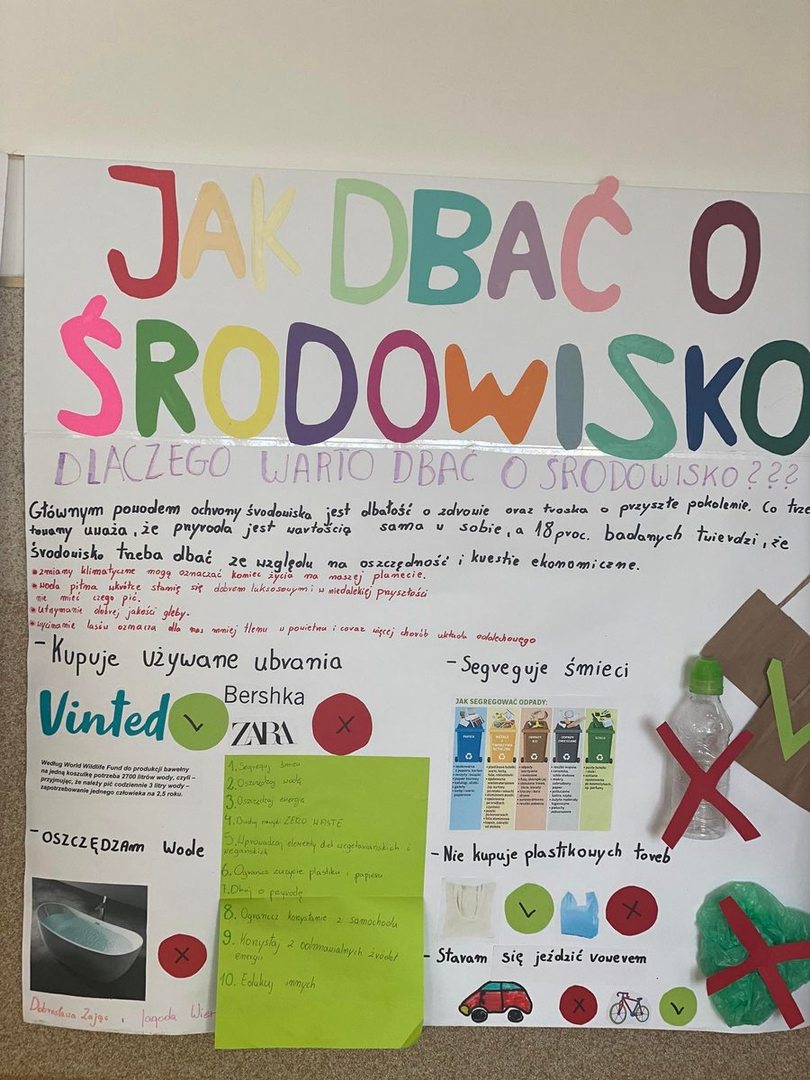 JAK DBAĆ O
ŚRODOWISKO
DLACZEGO WARTO DBAĆ O ŚRODOWISKO???
Głównym powodem ochrony środowiska jest dbałość o zdrowie oraz troska o przyszłe pokolenie. Co trze
towany uważa, że przyroda jest wartością sama w sobie, a 18 proc. badanych twierdzi, że
środowisko trzeba dbać ze względu na oszczędność i kwestie ekonomiczne.
• zmiany klimatyczne mogą oznaczać koniec życia na naszej planecie.
• woda pitna wkrótce stanie się dobrem luksusowym i w niedalekiej przyszłości
nie mieć czego pić.
• utrzymanie dobrej jakości gleby.
• wycinanie lasów oznacza dla nas mniej tlenu w powietrzu i coraz więcej chorób układu oddechowego
- Kupuje używane ubrania
Vinted
Bershka
ZARA
Według World Wildlife Fund do produkcji bawełny
na jedną koszulkę potrzeba 2700 litrów wody, czyli –
przyjmując, że należy pić codziennie 3 litry wody –
zapotrzebowanie jednego człowieka na 2,5 roku.
- OSZCZĘDZAm wode
Dobrosława Zając i Jagoda Wier
1. Segreguj śmieci
2. Oszczędzaj wodę
3. Oszczędzaj energię
4. ZERO WASTE
5. Wprowadzaj elementy diet wegetariańskich i
wegańskich
6. Ogranicz zużycie plastiku i papieru
7. Dbaj o przyrodę
8. Ogranicz korzystanie z samochodu
9. Korzystaj z odnawialnych źródeł
energii
10. Edukuj innych
- Segreguje śmieci
JAK SEGREGOWAĆ ODPADY:
PAPIER
METALE I TWORZYWA SZTUCZNE
ODPADY BIO
ODPADY ZMIESZANE
SZKŁO
- Nie kupuje plastikowych toreb
- Staram się jeździć rowerem